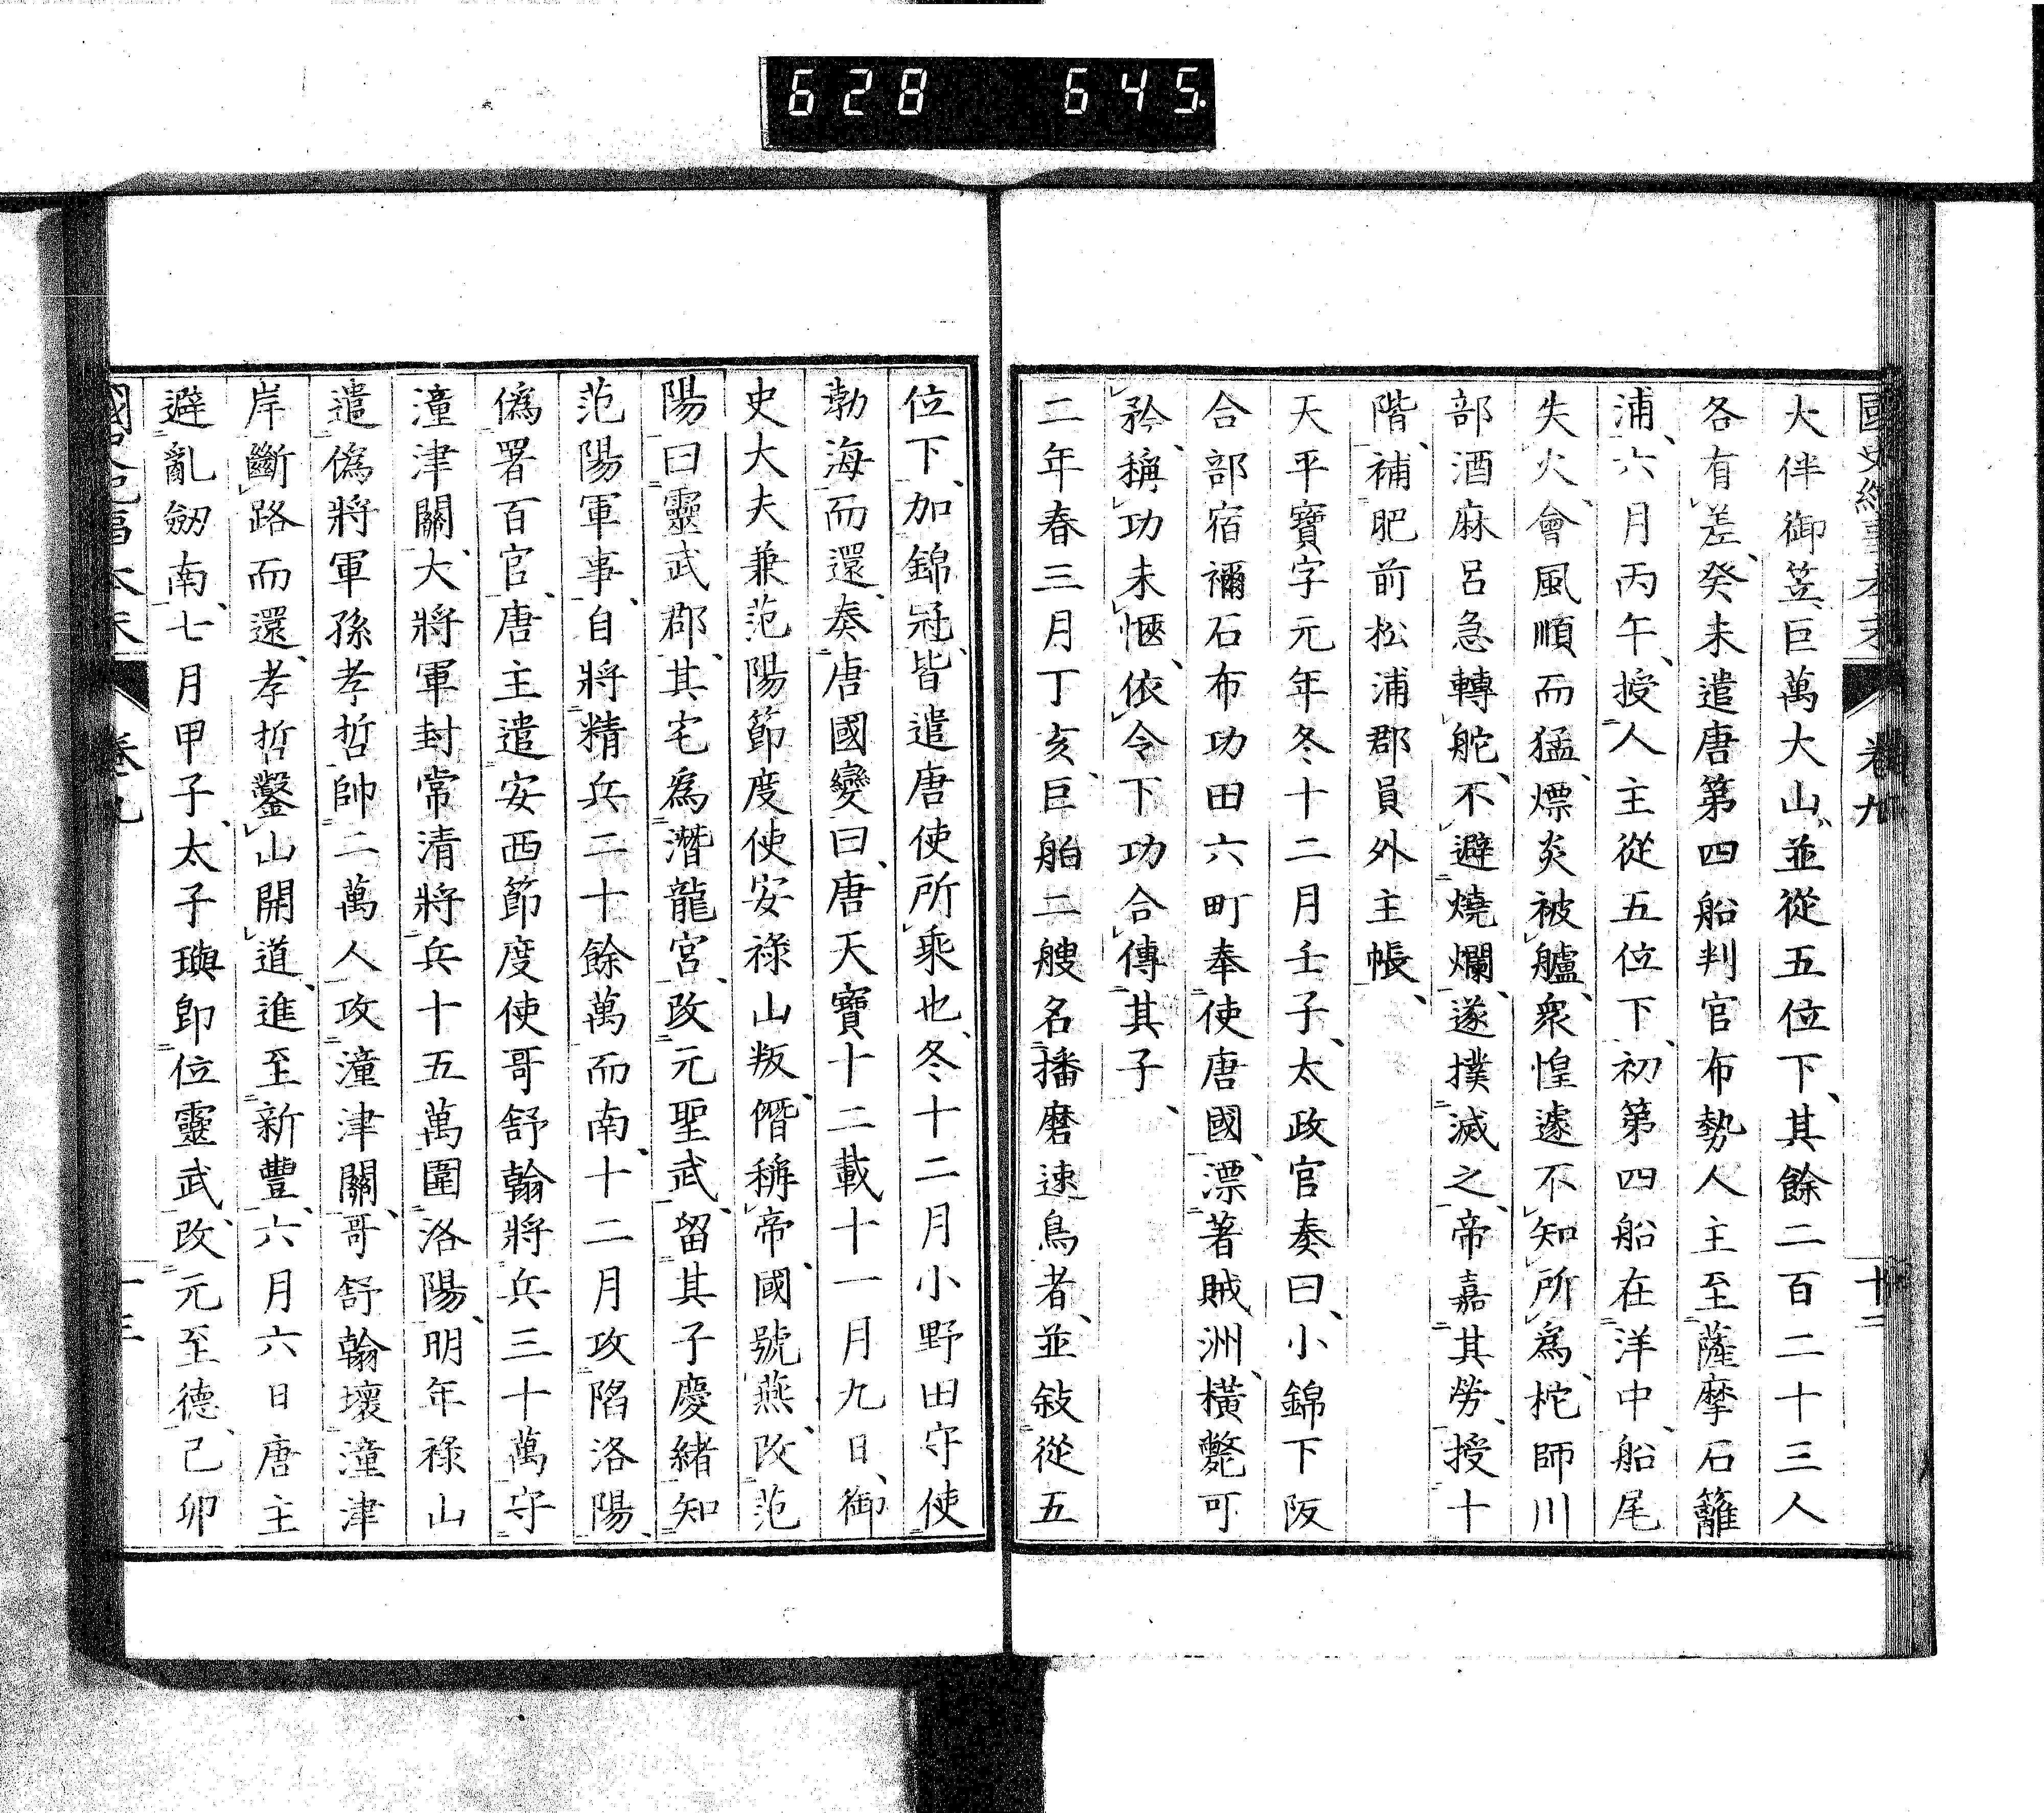 628 645.
國史紀事本末 卷九 十二
大伴御笠、巨萬大山、並從五位下、其餘二百二十三人
各有差、癸未遣唐第四船判官布勢人主至薩摩石籬
浦、六月丙午、授人主從五位下、初第四船在洋中、船尾
失火、會風順而猛、熛炎被艫、衆惶遽不知所爲、柁師川
部酒麻呂急轉舵、不避燒爛、遂撲滅之、帝嘉其勞、授十
階、補肥前松浦郡員外主帳、
天平寶字元年冬十二月壬子、太政官奏曰、小錦下阪
合部宿禰石布功田六町奉使唐國、漂著賊洲、橫斃可
矜、稱功未愜、依令下功合傳其子、
二年春三月丁亥、巨舶二艘名播磨速鳥者、並敍從五
位下、加錦冠、皆遣唐使所乘也、冬十二月小野田守使
勃海而還、奏唐國變曰、唐天寶十二載十一月九日、御
史大夫兼范陽節度使安祿山叛、僭稱帝、國號燕、改范
陽曰靈武郡、其宅爲潛龍宮、改元聖武、留其子慶緒知
范陽軍事、自將精兵二十餘萬而南、十二月攻陷洛陽、
僞署百官、唐主遣安西節度使哥舒翰將兵三十萬守
潼津關、大將軍封常清將兵十五萬圍洛陽、明年祿山
遣僞將軍孫孝哲帥二萬人攻潼津關、哥舒翰壞潼津
岸斷路而還、孝哲鑿山開道、進至新豐、六月六日唐主
避亂劒南、七月甲子、太子璵卽位靈武、改元至德、己卯
國史紀事本末 卷九 十三